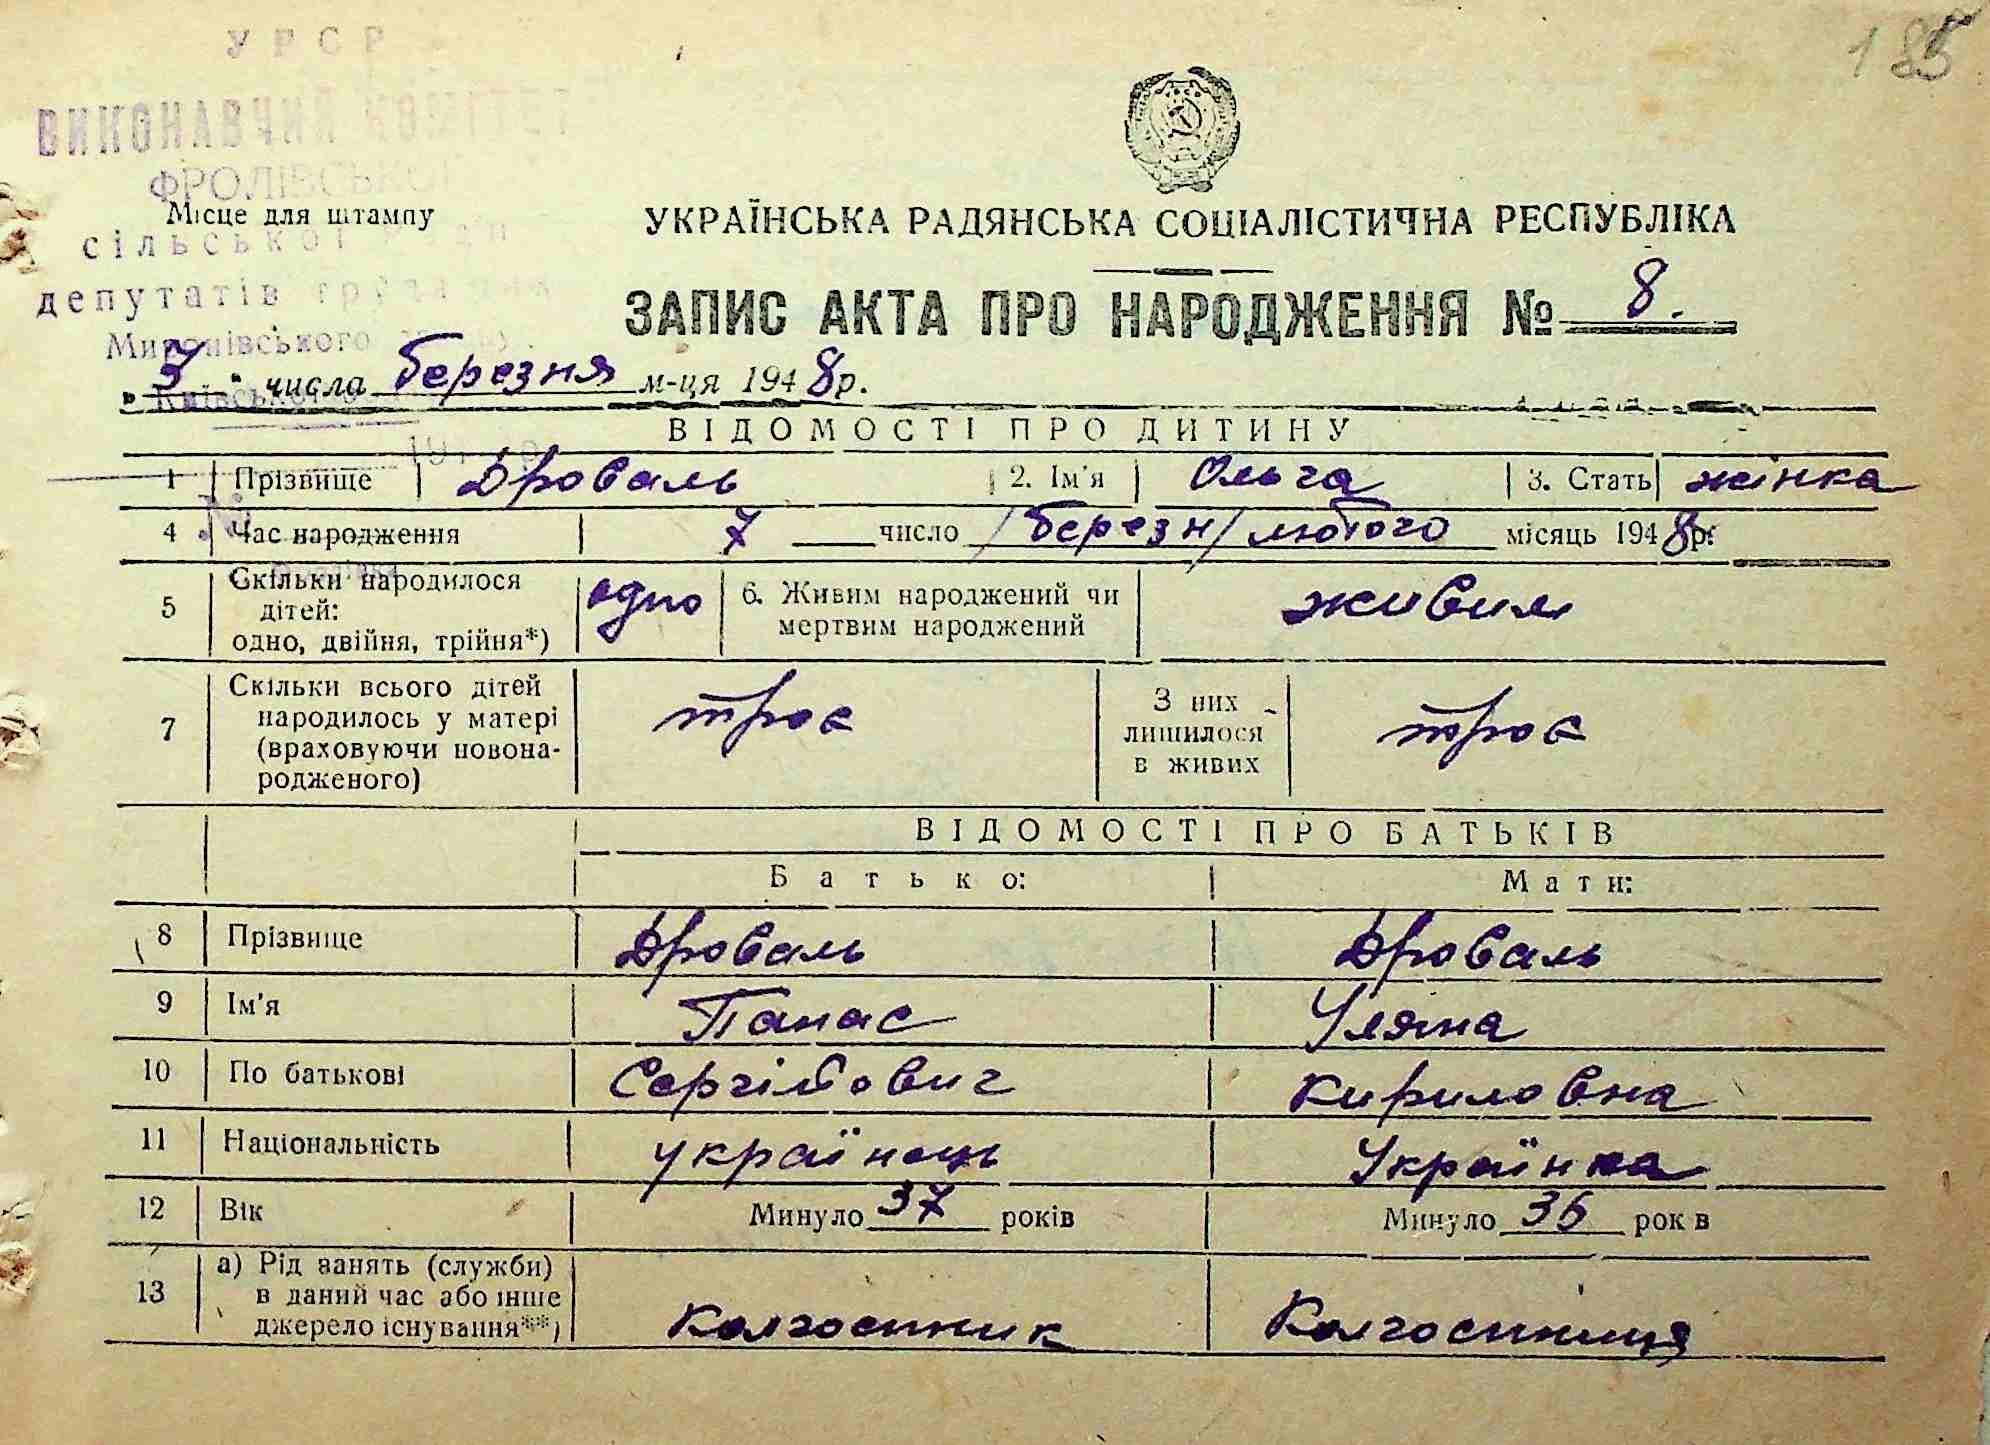 185
УРСР
ВИКОНАВЧИЙ КОМІТЕТ
ФРОЛІВСЬКОЇ
Місце для штампу
сільської ради
депутатів трудящих
Миронівського
Київської
УКРАЇНСЬКА РАДЯНСЬКА СОЦІАЛІСТИЧНА РЕСПУБЛІКА
ЗАПИС АКТА ПРО НАРОДЖЕННЯ № 8.
числа березня м-ця 1948р.
ВІДОМОСТІ ПРО ДИТИНУ
1 Прізвище Дроваль 2. Ім'я Ольга 3. Стать жінка
4 Час народження 7 число /березн/ лютого місяць 1948р.
5 Скільки народилося дітей: одно, двійня, трійня*) одно 6. Живим народжений чи мертвим народжений живим
7 Скільки всього дітей народилось у матері (враховуючи новонародженого) троє З них лишилося в живих троє
ВІДОМОСТІ ПРО БАТЬКІВ
Батько: Мати:
8 Прізвище Дроваль Дроваль
9 Ім'я Панас Уляна
10 По батькові Сергійович Кириловна
11 Національність українець Українка
12 Вік Минуло 37 років Минуло 36 рок в
13 а) Рід занять (служби) в даний час або інше джерело існування**) Колгоспник Колгоспниця